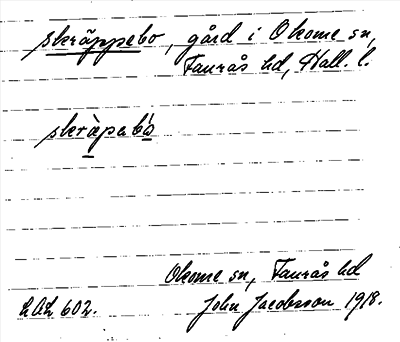 skräppebo, gård i Okome sn,
Faurås hd, Hall. l.
skràpabó
Okome sn, Faurås hd
LAL 602. John Jacobsson 1918.